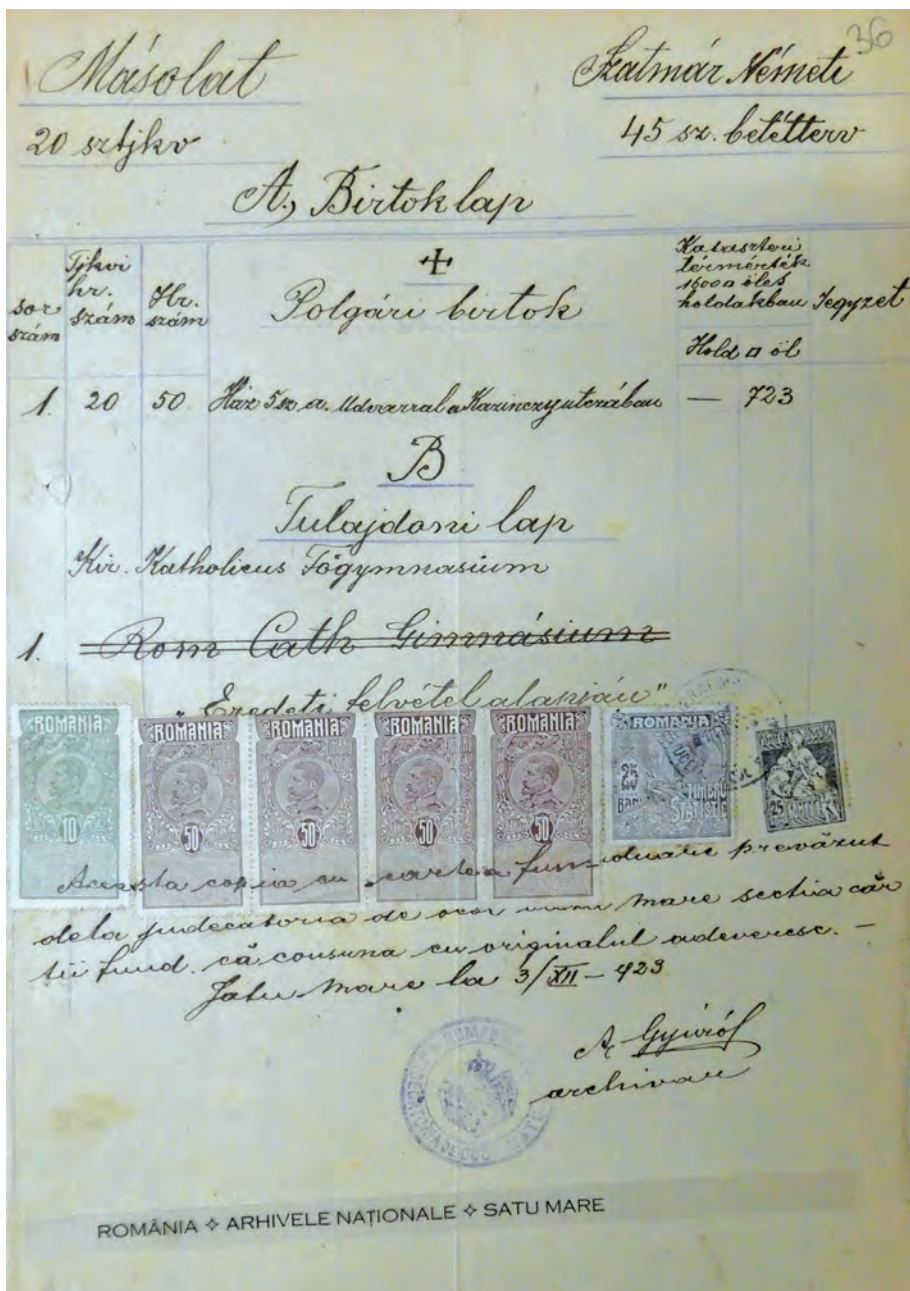 36
Másolat
Szatmár Németi
20 sztjkv
45 sz. betétterv
A., Birtoklap
sor szám
Tjkvi hr. szám
Hr. szám
Polgári birtok
Kataszteri térmérték 1600 □ öles holdakban
Jegyzet
Hold □ öl
1. 20 50 Ház 5 sz a. udvarral a Kazinczy utczában — 723
B
Tulajdoni lap
Kir. Katholicus Főgymnasium
1. Rom Cath Gimnásium
"Eredeti felvétel alapján"
ROMANIA ROMANIA ROMANIA ROMANIA ROMANIA ROMANIA
10 50 50 50 50 25 BANI TIMBRU STATISTIC 25
Acesta copia cu cartea funduare prevăzut
dela judecatoria de ocol mare sectia căr
tii fund. că consuna cu originalul adeveresc. —
Satu Mare la 3/XII – 923
archivar
ROMÂNIA ✧ ARHIVELE NAȚIONALE ✧ SATU MARE